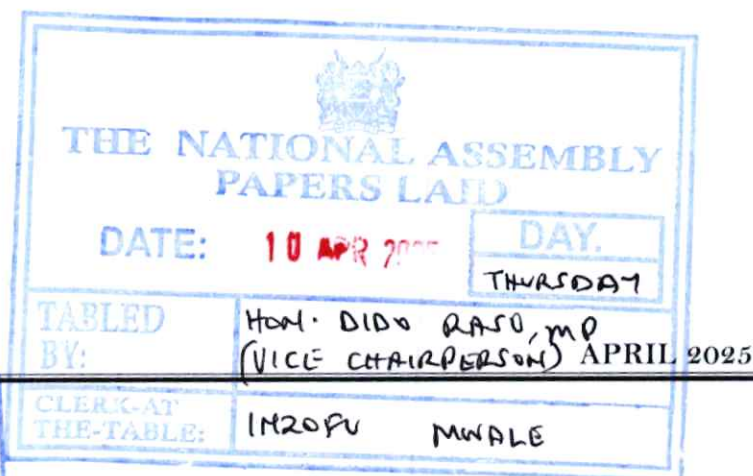 THE NATIONAL ASSEMBLY
PAPERS LAID
DATE: 10 APR DAY.
THURSDAY
TABLED BY: HON. DIDO RASO, MP
(VICE CHAIRPERSON) APRIL 2025
CLERK-AT THE-TABLE: MWALE